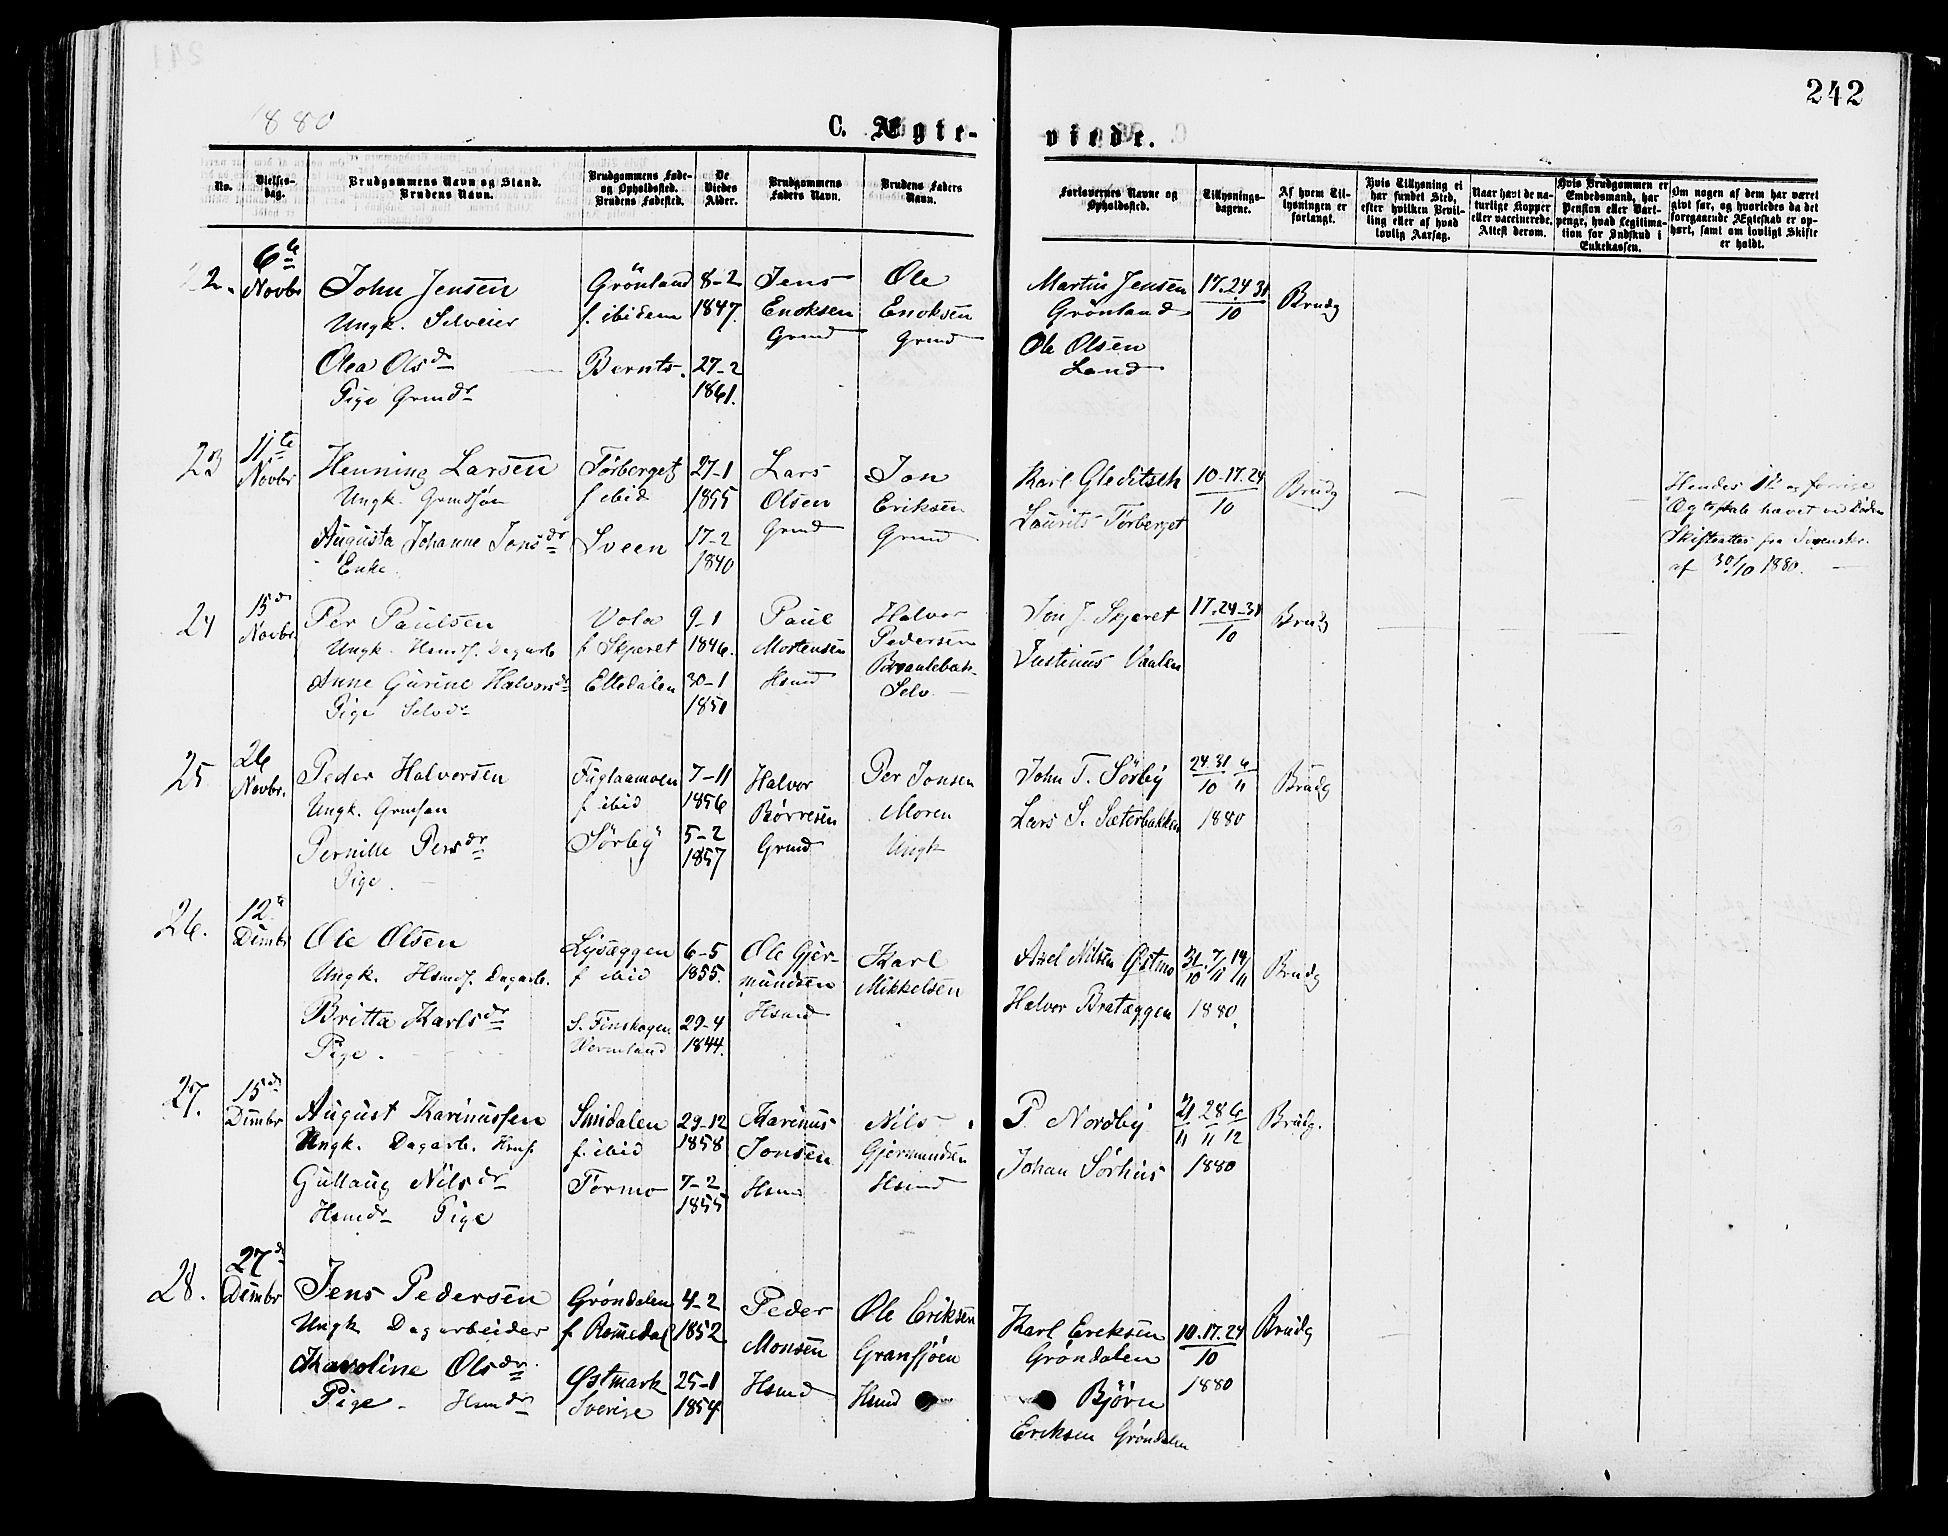 242
1880
C. Ægte-
viede.
No.
Vielses-
dag.
Brudgommens Navn og Stand.
Brudens Navn.
Brudgommens Føde-
og Opholdssted.
Brudens Fødested.
De
Viedes
Alder.
Brudgommens
Faders Navn.
Brudens Faders
Navn.
Forlovernes Navne og
Opholdssted.
Tillysnings-
dagene.
Af hvem Til-
lysningen er
forlangt.
Hvis Tillysning ei
har fundet Sted,
efter hvilken Bevil-
ling eller af hvad
lovlig Aarsag.
Naar havt de na-
turlige Kopper
eller vaccinerede.
Attest derom.
Hvis Brudgommen er
Embedsmand, har
Pension eller Vart-
penge, hvad Legitima-
tion for Indskud i
Enkekassen.
Om nogen af dem har været
givt før, og hvorledes da det
foregaaende Ægteskab er op-
hørt, samt om lovligt Skifte
er holdt.
2.
6te
Novbr
John Jensen
Ungk. Selveier
Olea Olsdr
Pige Grmdr
Grönland
f. ibidem
Bernts.
8-2
1847.
27-2
1861.
Jens
Enoksen
Grmd
Ole
Enoksen
Grmd
Martin Jensen
Grönland
Ole Olsen
Land
17.24 31
10
Brudg
23
11te
Novbr
Henning Larsen
Ungk. Grmdsøn
Augusta Johanne Jonsdr
Enke.
Törberget
f ibid
Sveen
27-1
1855
17-2
1840
Lars
Olsen
Grmd
Jon
Eriksen
Grmd
Karl Gleditsch
Laurits Törberget
10-17.24
10
Brudg
Hendes 1ste og forrige
Ægteskab hævet ved Døden
Skifteattest fra Sorenskr.
af 30/10 1880.
24
15de
Novbr.
Per Paulsen
Ungk. Hsmds. Dagarb
Anne Gurine Halvorsdr
Pige Selvdr
Vola
f Skjeret
Eltedalen
9-1
1846.
30-1
1850
Paul
Mortensen
Hsmd
Halvor
Pedersen
Selv.
Jon J. Skjeret
Justinus Vaalen
17.24-31
10
Brudg
25
26
Novbr.
Peder Halvorsen
Ungk. Grmsøn
Pernille Persdr
Pige.
Fuglaamoen
f ibid
Sørby
7-11
1856
5-2
1857
Halvor
Børresen
Grmd
Per Jonsen
Moren
Ungk
John T. Sörby
Lars S. Sæterbakken
24.31 6
10 11
1880
Brudg
26.
12te
Dcmbr
Ole Olsen
Ungk. Hsmds. Dagarb.
Britta Karlsdr
Pige.
Lysæggen
f ibid
S. Finskogen
Vermland
6-5
1855.
29-4
1844.
Ole Gjer-
mundsen
Hsmd
Karl
Mikkelsen
Axel Nilsen Østmo
Halvor Bratæggen
31 7 14
10 11 11
1880.
Brudg
27.
15de
Dcmbr
August Karinussen
Ungk. Dagarb. Hmsf.
Gullaug Nilsdr
Hsmdr Pige
Smidalen
f. ibid
Tørmo
29-12
1858
7-2
1855
Karinus
Jonsen
Hsmd
Nils
Gjermundsen
Hsmd
P. Nordby
Johan Sörhus
21 28 6
11 11 12
1880
Brudg.
28.
27de
Dcmbr
Jens Pedersen
Ungk Dagarbeider
Karoline Olsdr.
Pige - Hsmdr
Gröndalen
f. Romedal
Østmark
Sverige
4-2
1852
25-1
1854
Peder
Monsen
Hsmd
Ole Eriksen
Gransjöen
Hsmd
Karl Ereksen
Gröndalen
Björn
Ereksen Gröndalen
10.17.24
10
1880
Brudg